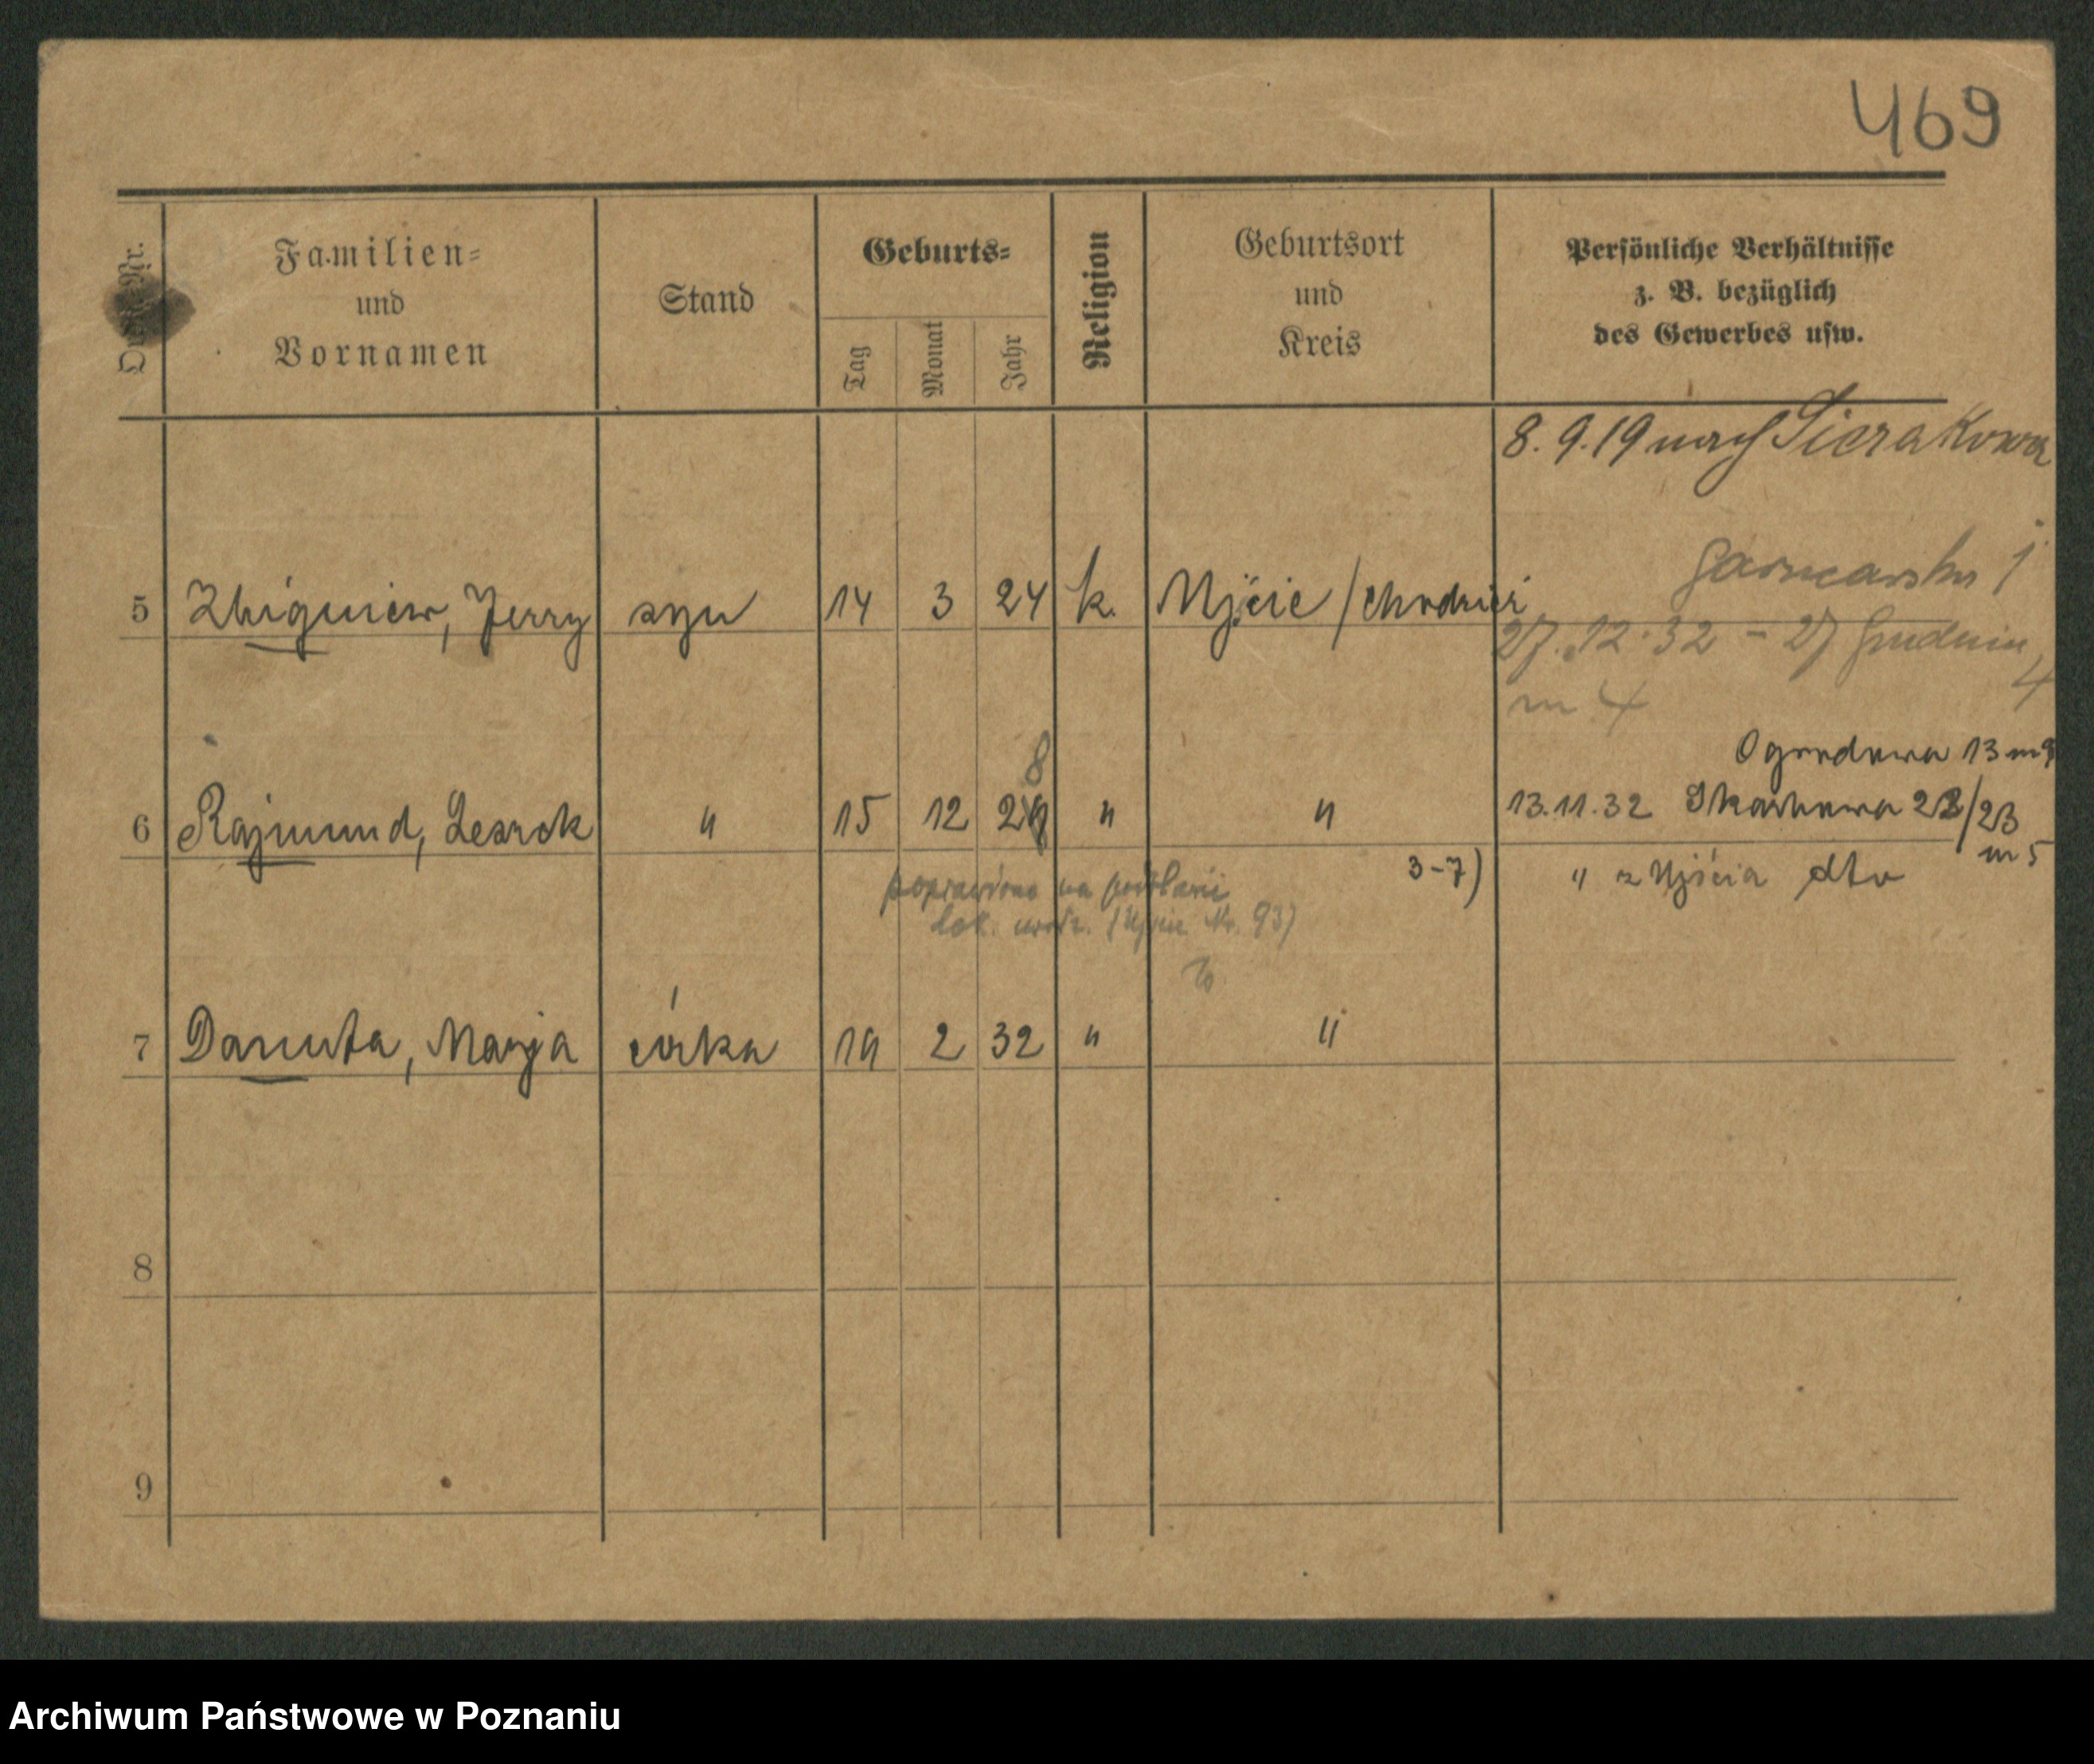 469
Familien-
und
Vornamen
Stand
Geburts-
Tag
Monat
Jahr
Religion
Geburtsort
und
Kreis
Persönliche Verhältnisse
z. B. bezüglich
des Gewerbes usw.
8. 9. 19 nach Sierakowa
5 Zbigniew, Jerzy syn 14 3 24 k. Ujście / Chodzież
27.12.32 - 27 Grudnia 4
m 4
8
Ogrodowa 13 m 9
6 Rajmund, Leszek " 15 12 " " 13.11.32 Skarbowa 23/23
m 5
3-7) " z Ujścia dto
poprawiono na podstawie
dok. urodz. (Ujście Nr. 93)
7 Danuta, Marja córka 19 2 32 " "
8
9
Archiwum Państwowe w Poznaniu